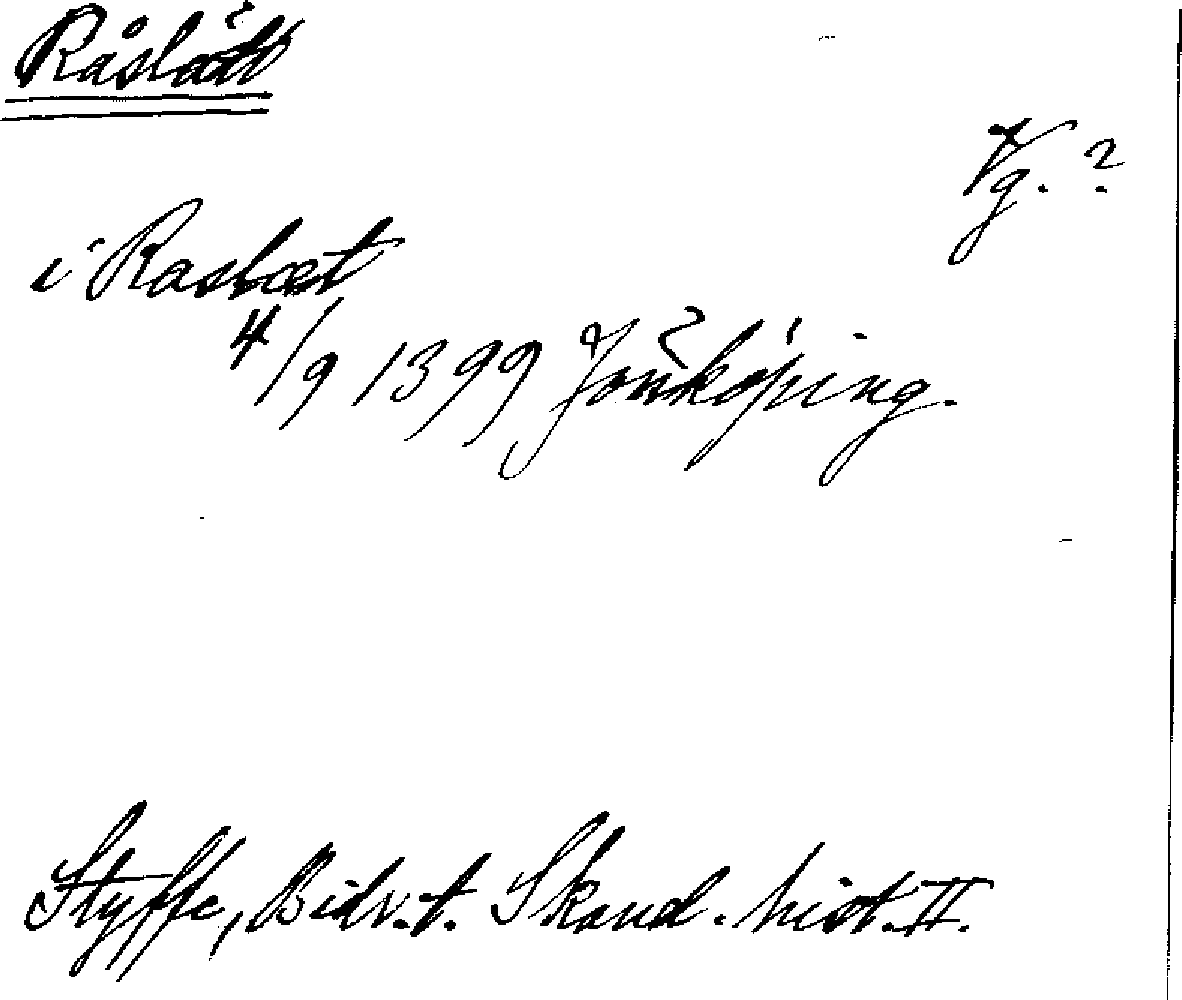 Råslätt
Vg. ?
i Raslæt
4/9 1399 Jönköping.
Styffe, Bidr. t. Skand. hist. II.